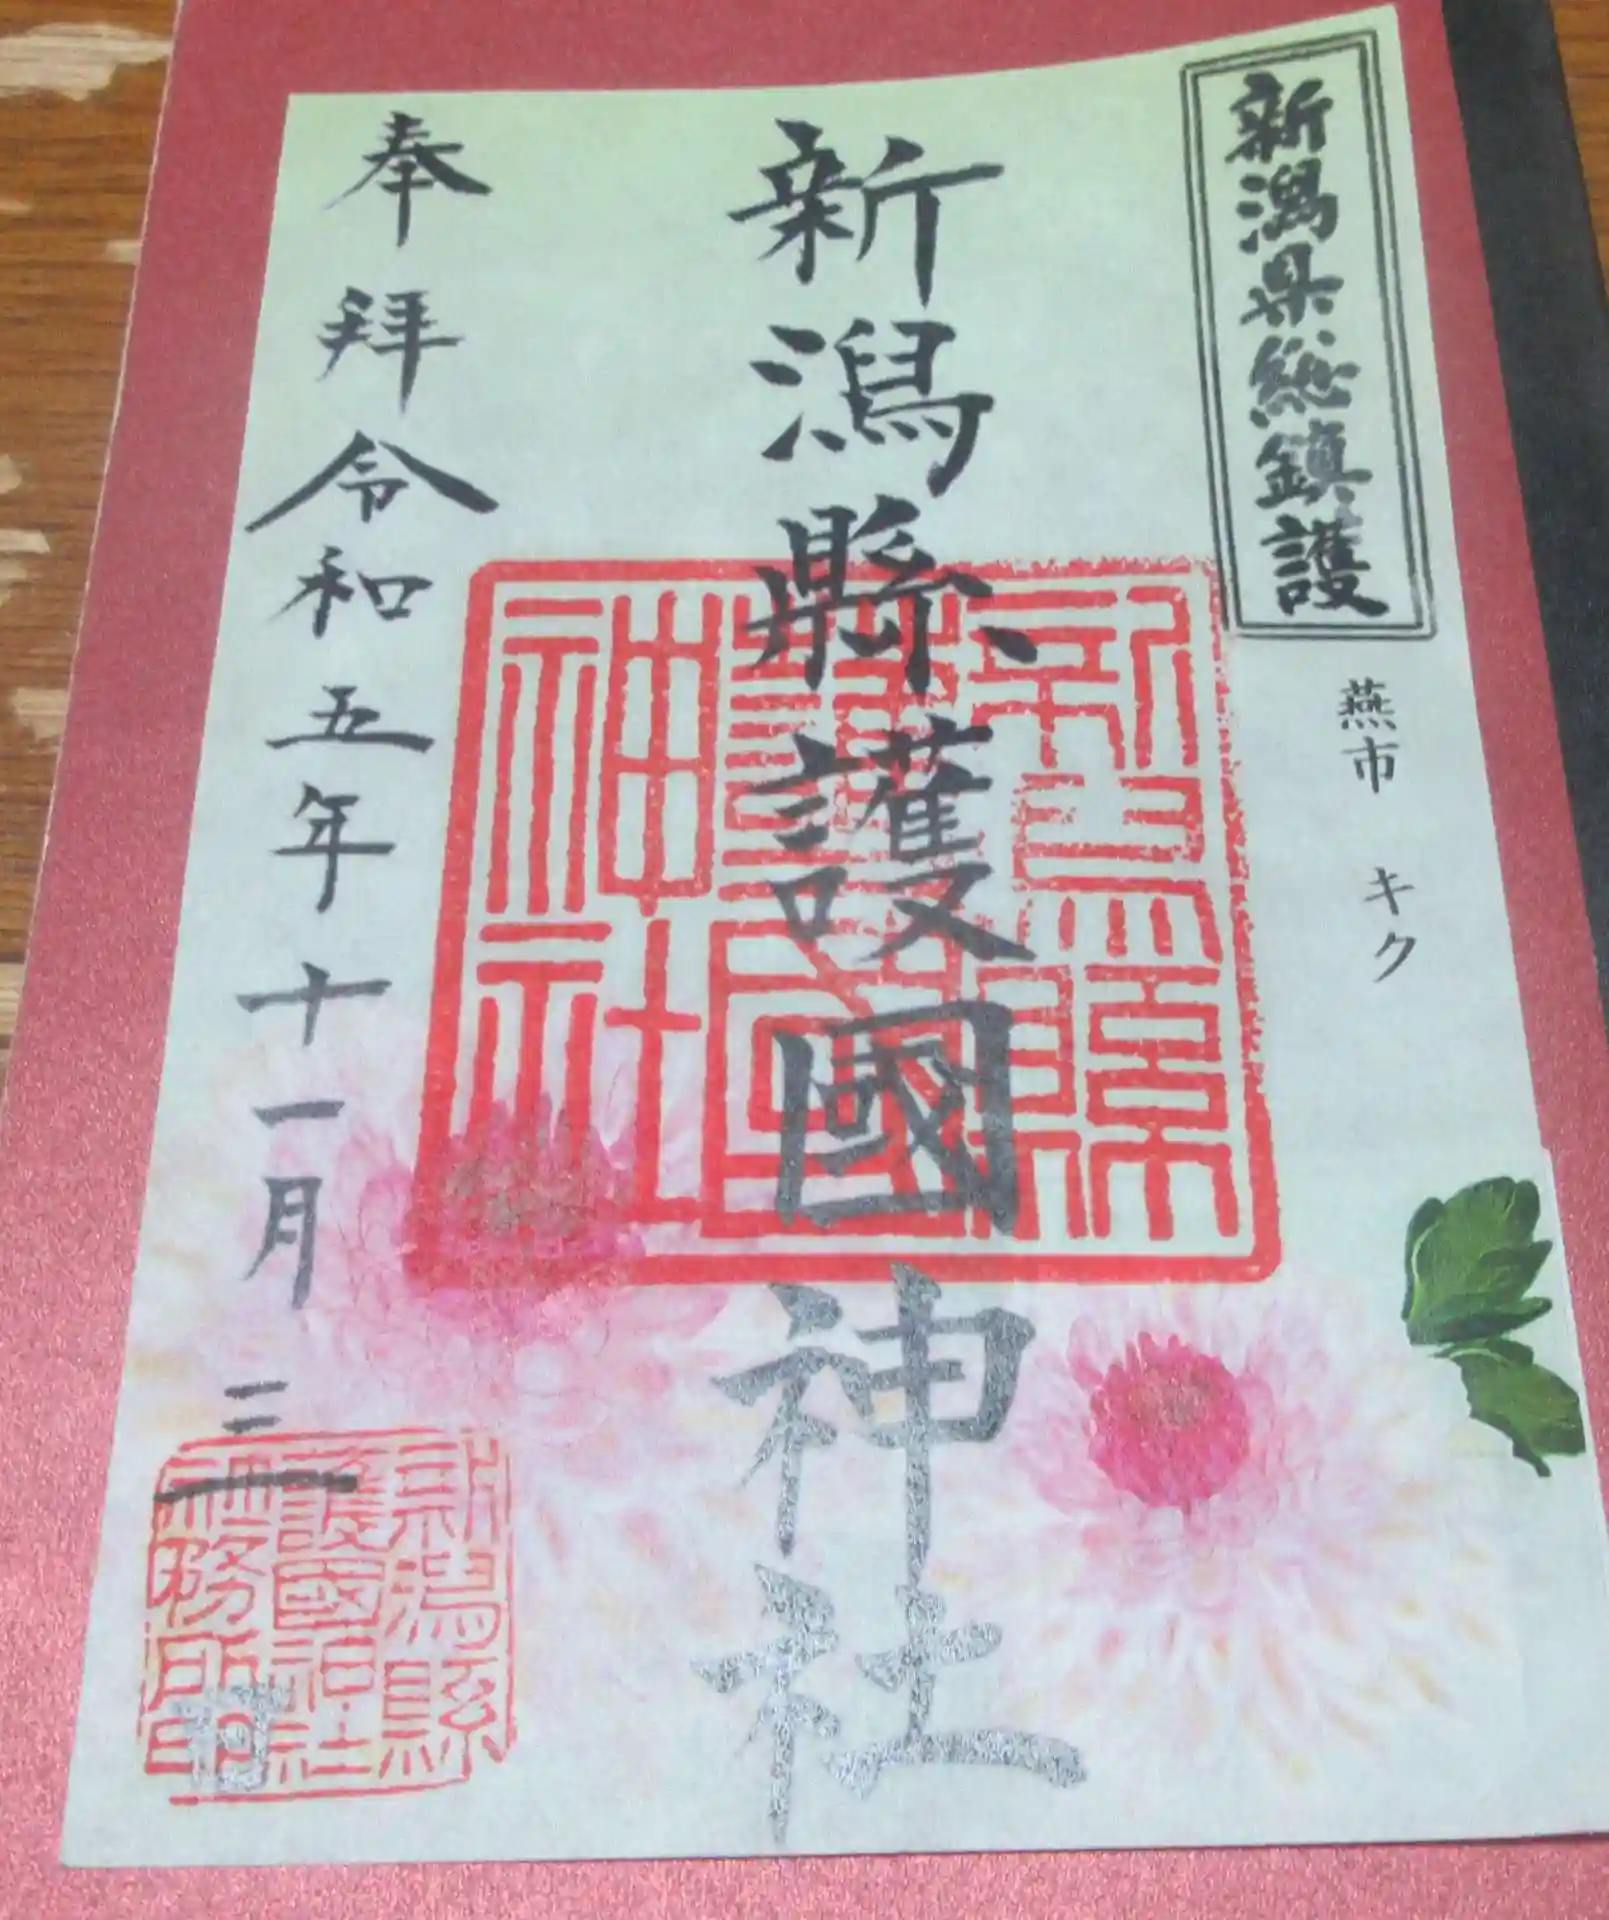 新潟県総鎮護
燕市 キク
新潟縣護國神社
奉拝 令和五年十一月三日
新潟縣
護國神社
社務所印